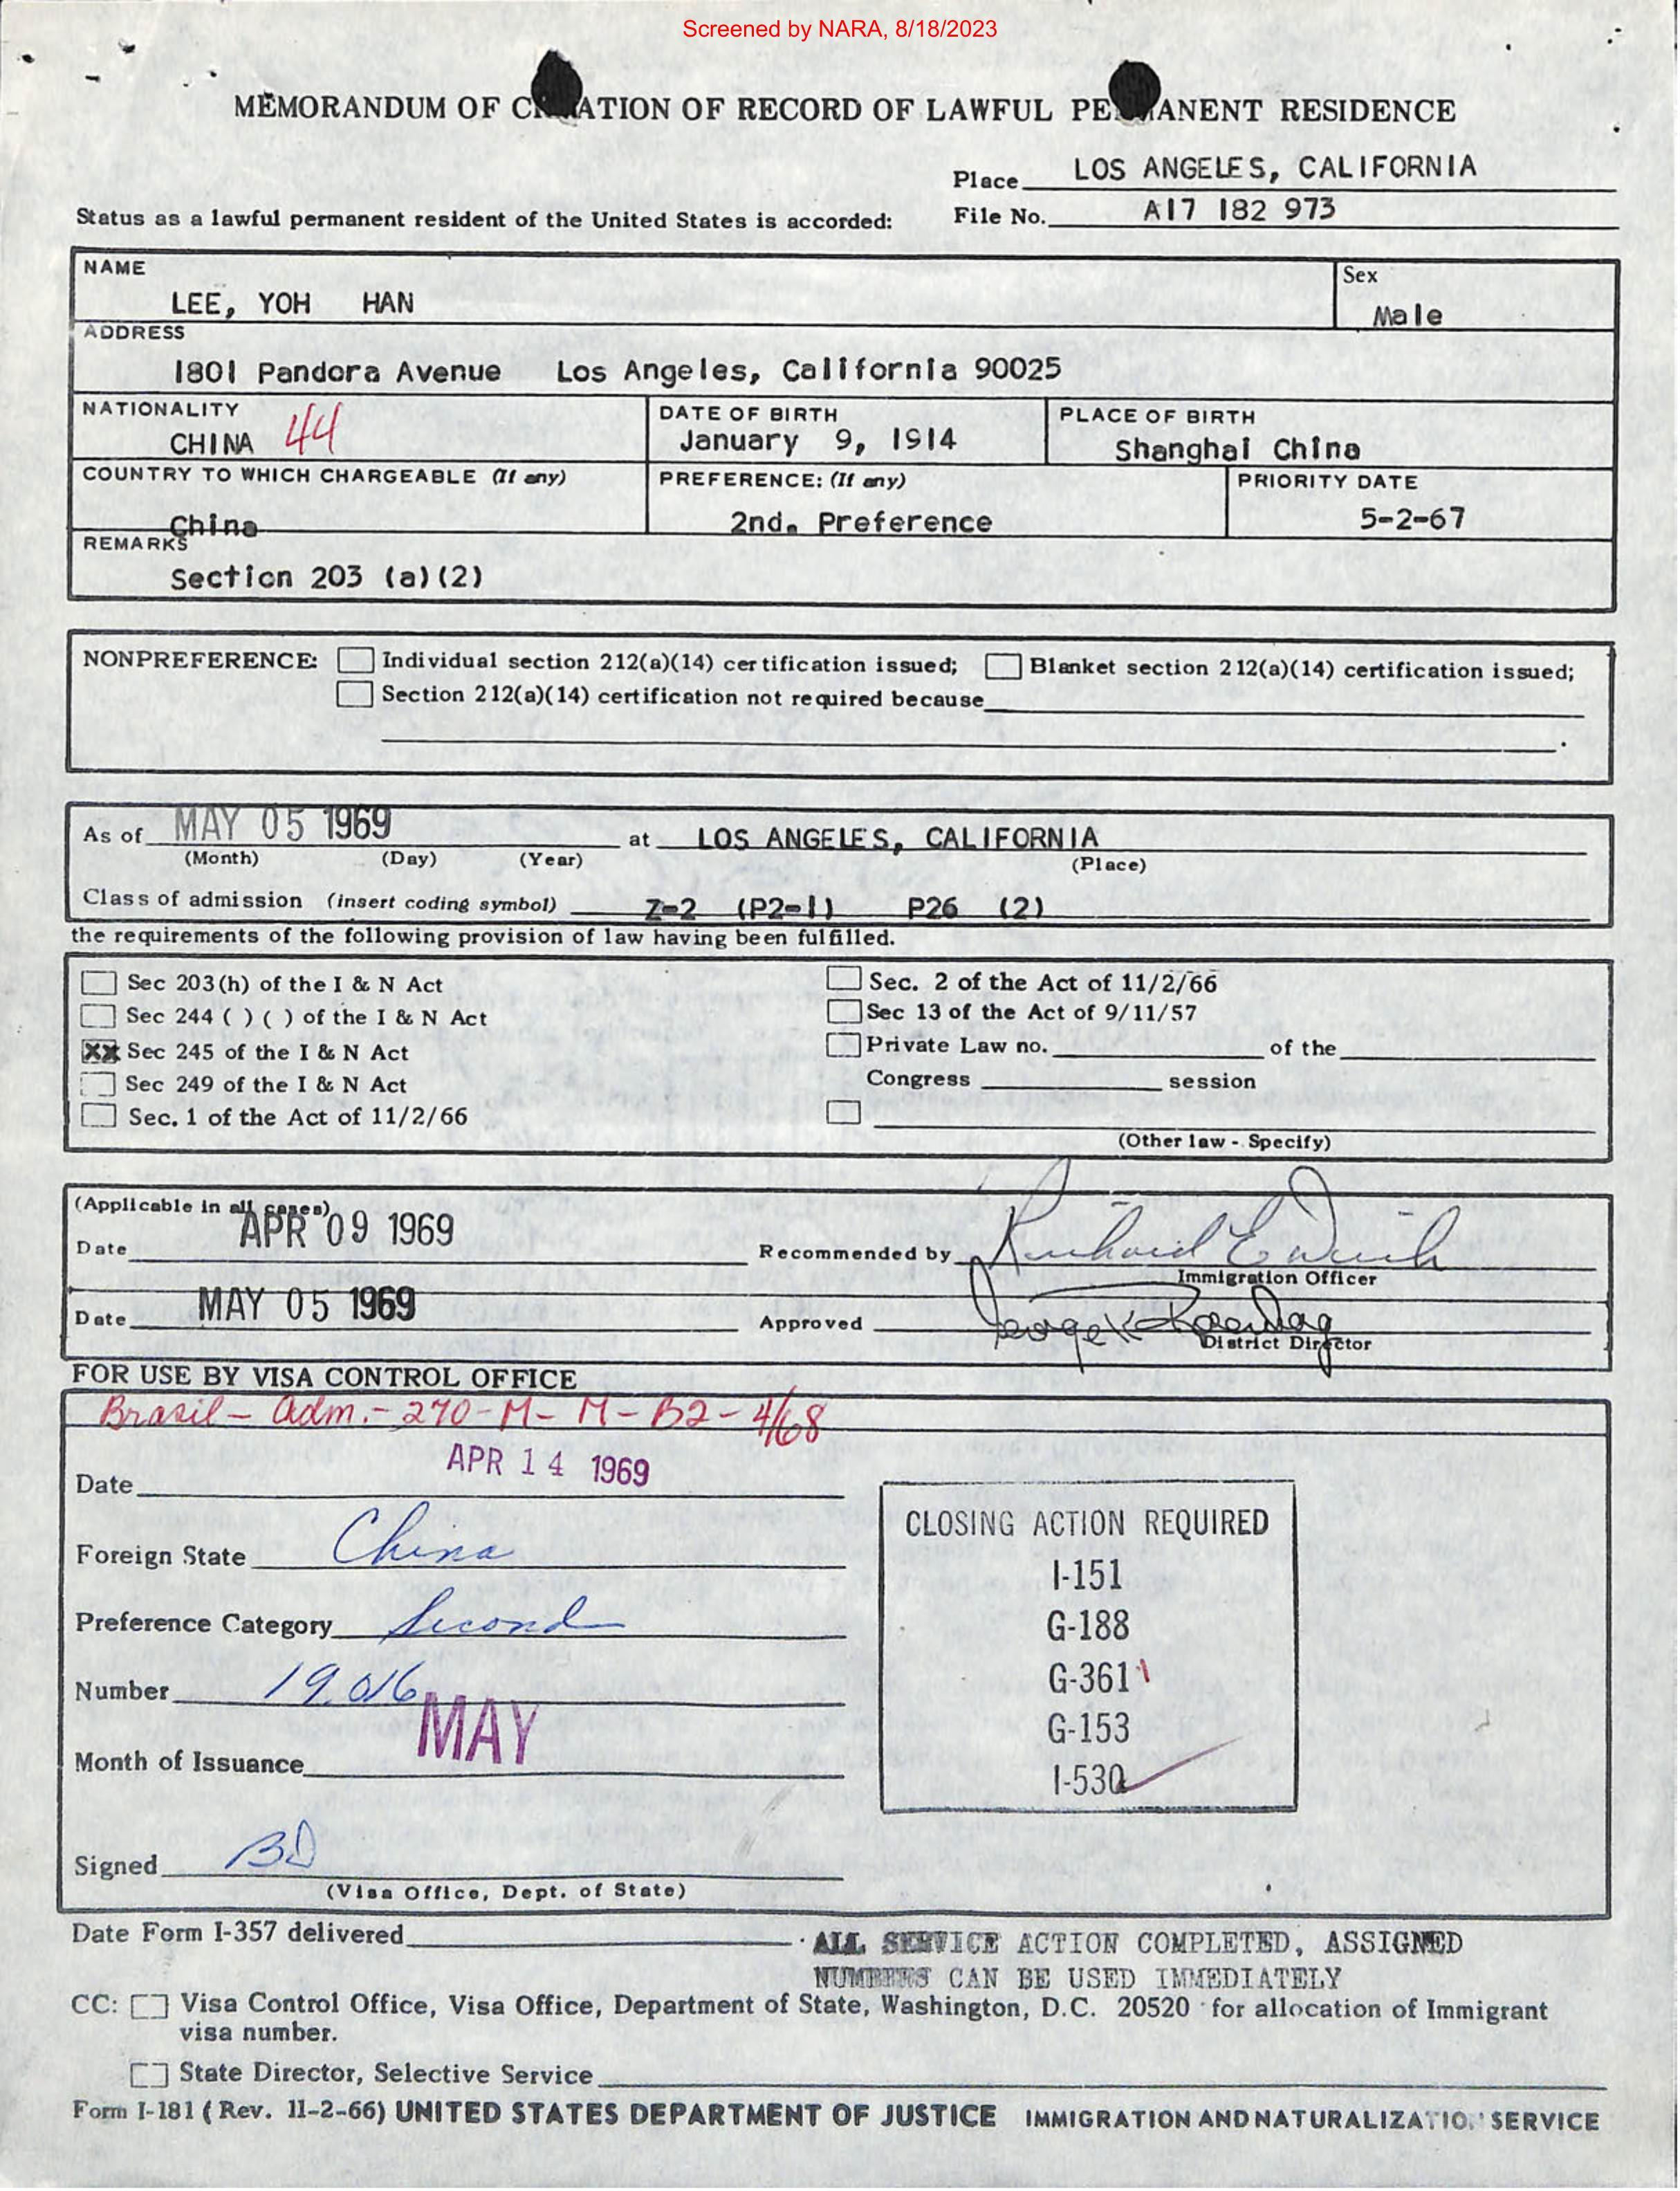 Screened by NARA, 8/18/2023
MEMORANDUM OF C ATION OF RECORD OF LAWFUL PE ANENT RESIDENCE
Place LOS ANGELES, CALIFORNIA
Status as a lawful permanent resident of the United States is accorded: File No. A17 182 973
NAME Sex
LEE, YOH HAN Male
ADDRESS
1801 Pandora Avenue Los Angeles, California 90025
NATIONALITY 44 DATE OF BIRTH PLACE OF BIRTH
CHINA January 9, 1914 Shanghai China
COUNTRY TO WHICH CHARGEABLE (If any) PREFERENCE: (If any) PRIORITY DATE
China 2nd. Preference 5-2-67
REMARKS
Section 203 (a)(2)
NONPREFERENCE: Individual section 212(a)(14) certification issued; Blanket section 212(a)(14) certification issued;
Section 212(a)(14) certification not required because
As of MAY 05 1969 at LOS ANGELES, CALIFORNIA
(Month) (Day) (Year) (Place)
Class of admission (insert coding symbol) Z-2 (P2-1) P26 (2)
the requirements of the following provision of law having been fulfilled.
Sec 203(h) of the I & N Act Sec. 2 of the Act of 11/2/66
Sec 244 ( ) ( ) of the I & N Act Sec 13 of the Act of 9/11/57
XX Sec 245 of the I & N Act Private Law no. of the
Sec 249 of the I & N Act Congress session
Sec. 1 of the Act of 11/2/66
(Other law - Specify)
(Applicable in all cases)
Date APR 09 1969 Recommended by Richard E
Immigration Officer
Date MAY 05 1969 Approved George K
District Director
FOR USE BY VISA CONTROL OFFICE
Brasil - Adm. - 270 - M - M - B2 - 4/68
Date APR 14 1969
CLOSING ACTION REQUIRED
Foreign State China
I-151
Preference Category Second
G-188
Number 19.016
G-361
Month of Issuance MAY
G-153
I-530
Signed BD
(Visa Office, Dept. of State)
Date Form I-357 delivered ALL SERVICE ACTION COMPLETED, ASSIGNED
NUMBERS CAN BE USED IMMEDIATELY
CC: Visa Control Office, Visa Office, Department of State, Washington, D.C. 20520 for allocation of Immigrant
visa number.
State Director, Selective Service
Form I-181 (Rev. 11-2-66) UNITED STATES DEPARTMENT OF JUSTICE IMMIGRATION AND NATURALIZATION SERVICE